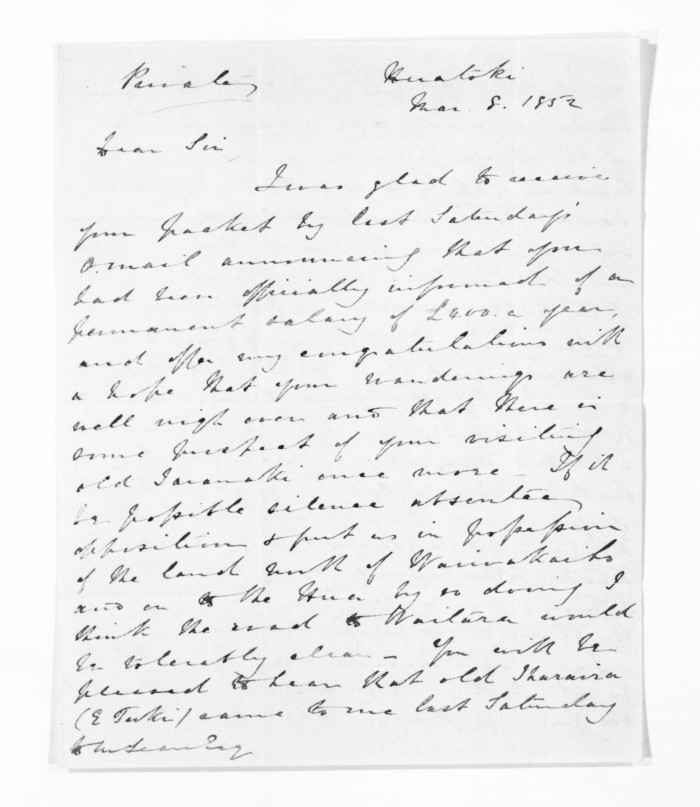 Private
Huatoki
Mar. 8. 1852
Dear Sir,
I was glad to receive
your packet by last Saturday's
mail announcing that you
had been officially informed of a
permanent salary of a year,
and offer my congratulations with
a hope that your wanderings are
well nigh over and that there is
some prospect of your visiting
old Taranaki once more – If it
be possible silence absentee
opposition & put us in possession
of the land north of Waiwakaiho
and on to the Hua by so doing I
think the road to Waitara would
be tolerably clear – You will be
pleased to hear that old Iharaira
(E Tuki) came to me last Saturday
McLean Esq